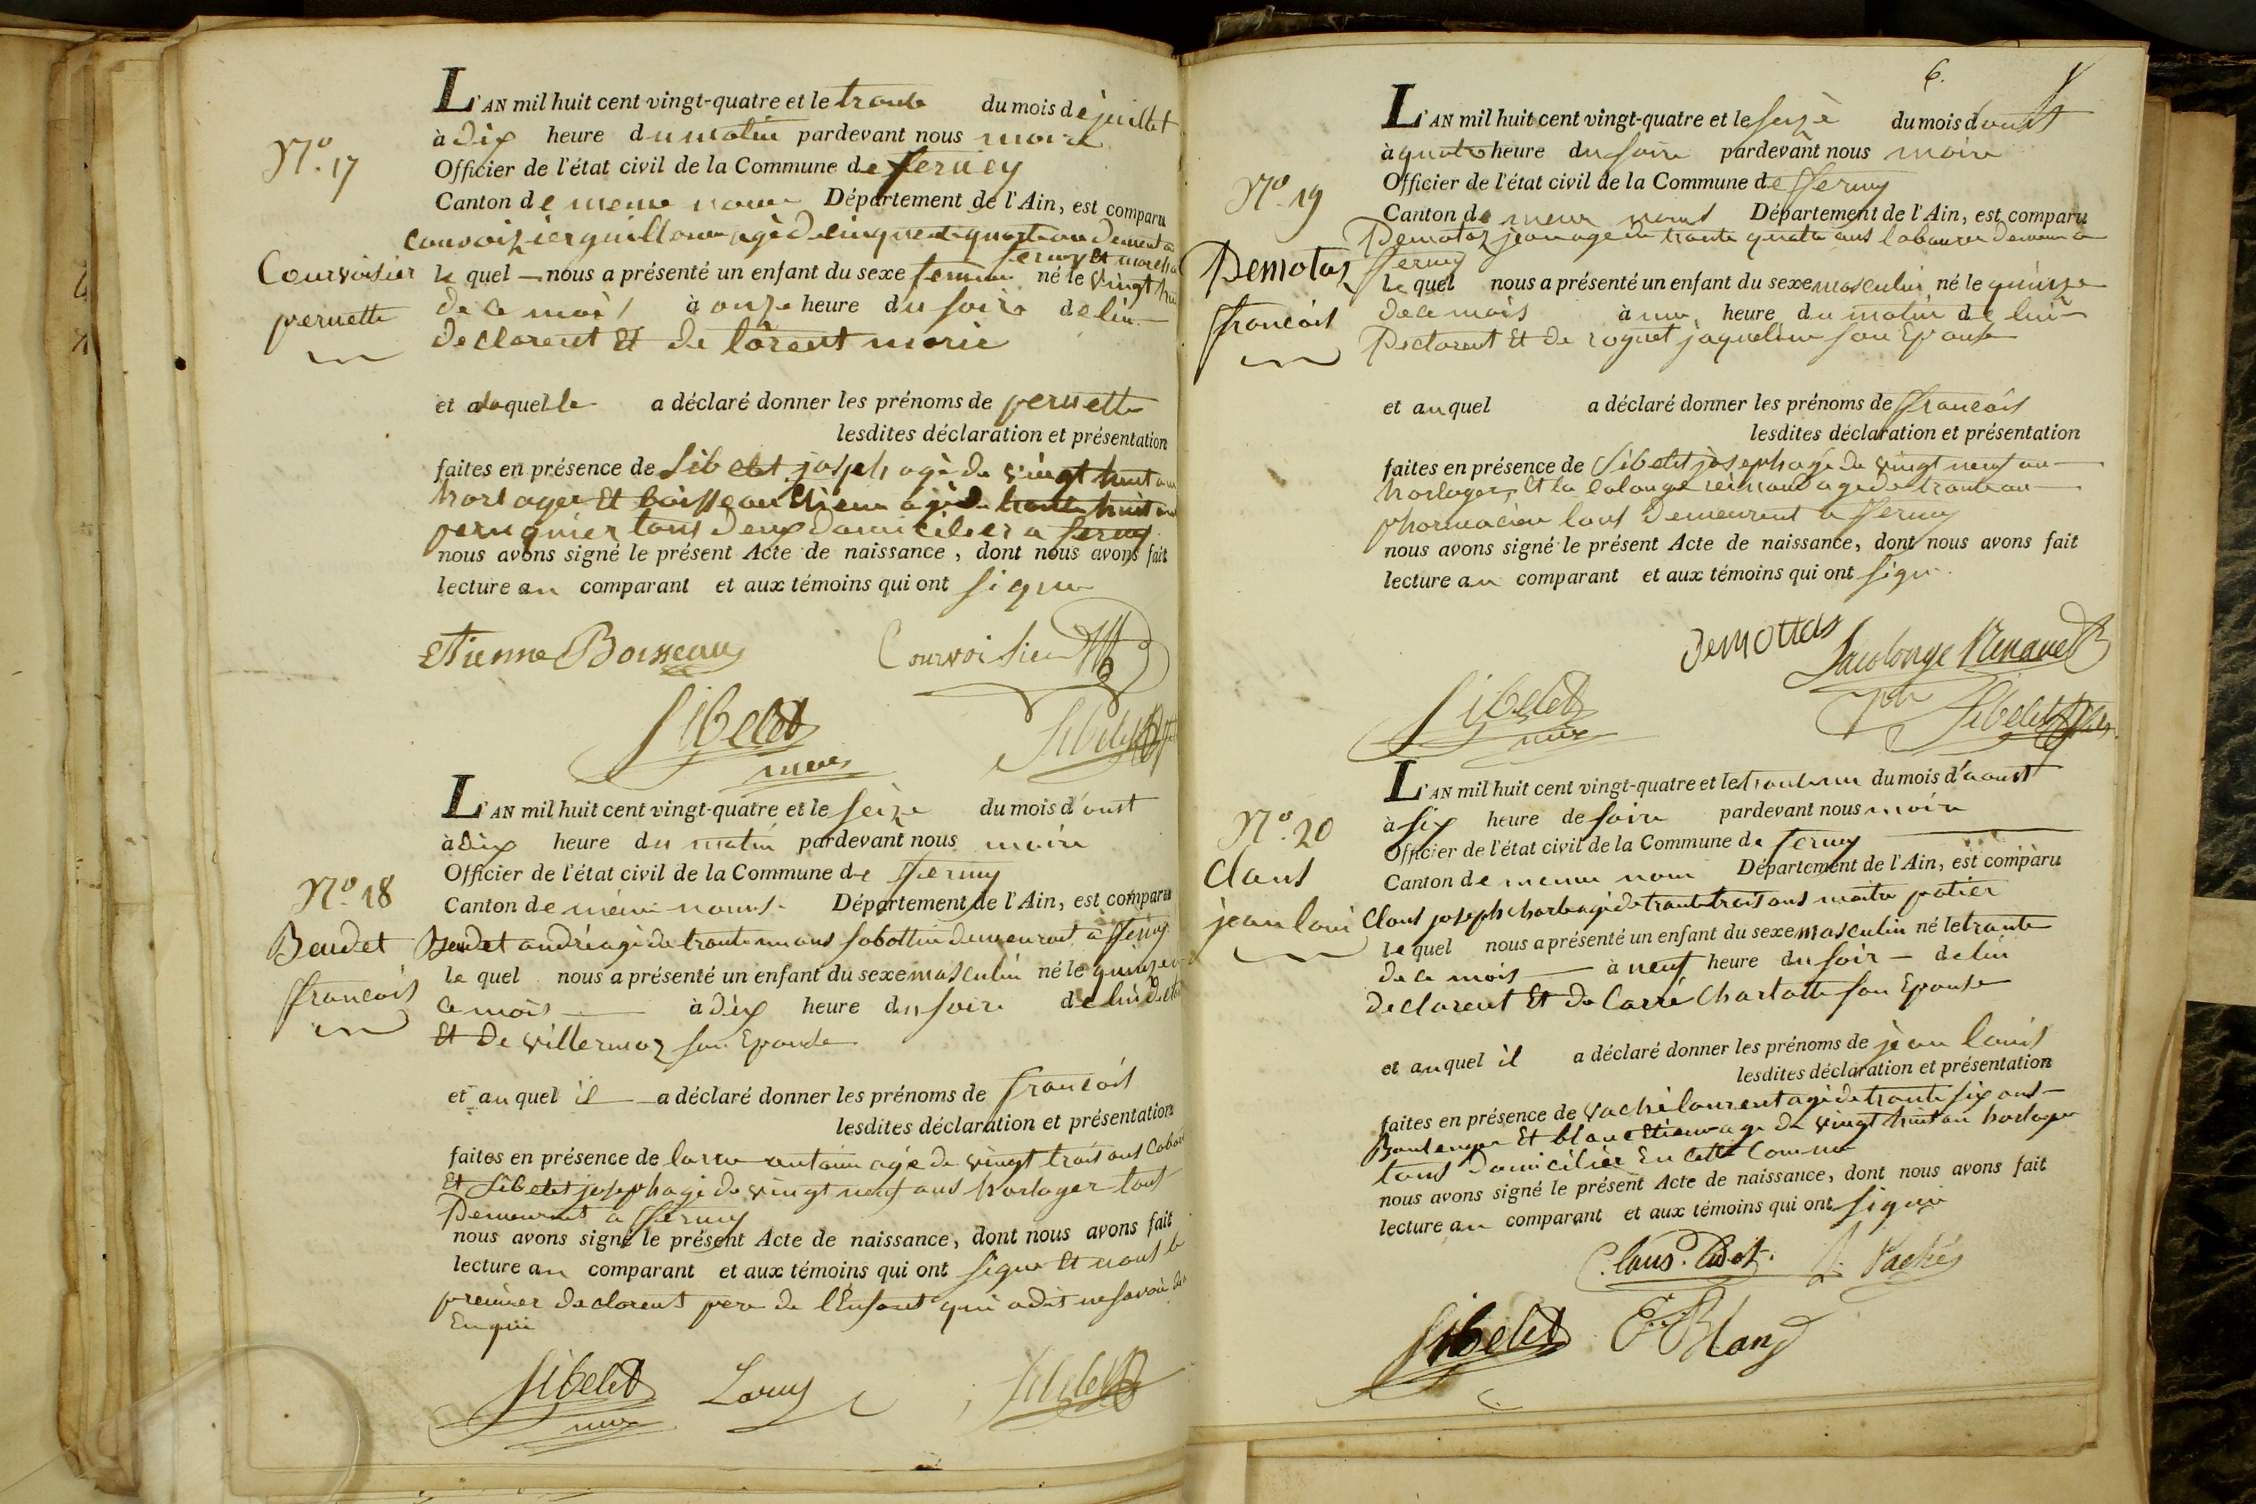 N.º 17
Courvoisier
pernette
L'AN mil huit cent vingt-quatre et le trante du mois de juillet
à dix heure du matin pardevant nous maire
Officier de l'état civil de la Commune de ferney
Canton de meme nom Département de l'Ain, est comparu
courvoizier guillaume agé de cinquente quatre ans demeurt a
ferney et
le quel nous a présenté un enfant du sexe feminin né le vingt hui
de ce mois à onze heure du soire de lui
declarent Et de lorent marie
et a laquelle a déclaré donner les prénoms de pernette
lesdites déclaration et présentation
faites en présence de Sibelet joseph agé de vingt huit ans
horlager Et boisseau Etienne agé de trante huit ans
peruquier tous deux domicilier a ferney
nous avons signé le présent Acte de naissance, dont nous avons fait
lecture au comparant et aux témoins qui ont signe
Etienne Boisseau Courvoisier
Sibelet Sibelet
maire
N.º 18
Baudet
francois
L'AN mil huit cent vingt-quatre et le seize du mois d'oust
à dix heure du matin pardevant nous maire
Officier de l'état civil de la Commune de fferney
Canton de meme noms Département de l'Ain, est comparu
Baudet andré agé de trante un ans sabottie demeurent a fferney
le quel nous a présenté un enfant du sexe masculin né le quinze
ce mois à dix heure du soire de lui
Et de villermoz son Epouse
et au quel il a déclaré donner les prénoms de francois
lesdites déclaration et présentation
faites en présence de larue antoine agé de vingt trois ans
Et Sibelet joseph agé de vingt neuf ans horlager tous
Demeurent a fferney
nous avons signé le présent Acte de naissance, dont nous avons fait
lecture au comparant et aux témoins qui ont signe Et nons le
premier declarent pere de l'Enfant qui a dit ne savoir
Enquis
Sibelet Larue Sibelet
maire
6.
N.º 19
Demotaz
francois
L'AN mil huit cent vingt-quatre et le seize du mois d'oust
à quatre heure du soire pardevant nous maire
Officier de l'état civil de la Commune de fferney
Canton de meme noms Département de l'Ain, est comparu
Demotaz jean age de trante quatre ans laboureur demeurt a
fferney
le quel nous a présenté un enfant du sexe masculin né le quinze
de ce mois à une heure du matin de lui
Declarent Et de roguet jaqueline son Epouse
et au quel a déclaré donner les prénoms de francois
lesdites déclaration et présentation
faites en présence de Sibelet joseph agé de vingt neuf ans
horlager, Et la colonge reimond age de trante ans
pharmacien tous demeurent a fferney
nous avons signé le présent Acte de naissance, dont nous avons fait
lecture au comparant et aux témoins qui ont signe
Demottas Lacolonge
Sibelet Sibelet
maire
N.º 20
Claus
jean louis
L'AN mil huit cent vingt-quatre et le trante un du mois d'aoust
à six heure de soire pardevant nous maire
Officier de l'état civil de la Commune de ferney
Canton de meme nom Département de l'Ain, est comparu
Claus joseph charle agé de trante trois ans maitre potier
le quel nous a présenté un enfant du sexe masculin né le trante
de ce mois à neuf heure du soir de lui
declarent Et de Carré Charlotte son Epouse
et au quel il a déclaré donner les prénoms de jean louis
lesdites déclaration et présentation
faites en présence de vaché laurent agé de trante six ans
Boulenger Et blanc Etienne age de vingt huit ans horlager
tous domicilier En cette Commune
nous avons signé le présent Acte de naissance, dont nous avons fait
lecture au comparant et aux témoins qui ont signe
Claus. Vachés
Sibelet E. Blanc